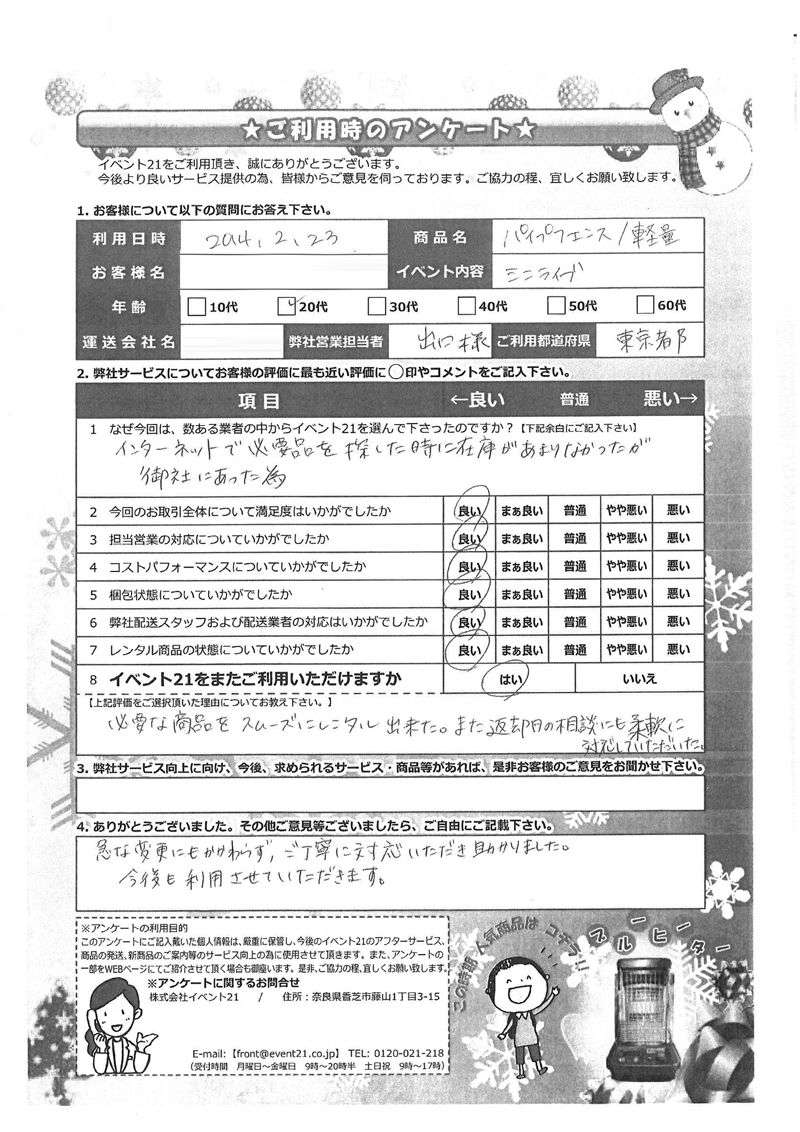 ★ご利用時のアンケート★
イベント21をご利用頂き、誠にありがとうございます。
今後より良いサービス提供の為、皆様からご意見を伺っております。ご協力の程、宜しくお願い致します。
1. お客様について以下の質問にお答え下さい。
利用日時 2014.2.23 商品名 パイプフェンス/軽量
お客様名 イベント内容 ミニライブ
年齢 □10代 ☑20代 □30代 □40代 □50代 □60代
運送会社名 弊社営業担当者 出口様 ご利用都道府県 東京都
2. 弊社サービスについてお客様の評価に最も近い評価に◯印やコメントをご記入下さい。
項目 ←良い 普通 悪い→
1 なぜ今回は、数ある業者の中からイベント21を選んで下さったのですか？【下記余白にご記入下さい】
インターネットで必要品を探した時に在庫があまりなかったが
御社にあった為
2 今回のお取引全体について満足度はいかがでしたか 良い まぁ良い 普通 やや悪い 悪い
3 担当営業の対応についていかがでしたか 良い まぁ良い 普通 やや悪い 悪い
4 コストパフォーマンスについていかがでしたか 良い まぁ良い 普通 やや悪い 悪い
5 梱包状態についていかがでしたか 良い まぁ良い 普通 やや悪い 悪い
6 弊社配送スタッフおよび配送業者の対応はいかがでしたか 良い まぁ良い 普通 やや悪い 悪い
7 レンタル商品の状態についていかがでしたか 良い まぁ良い 普通 やや悪い 悪い
8 イベント21をまたご利用いただけますか はい いいえ
【上記評価をご選択頂いた理由についてお教え下さい。】
必要な商品をスムーズにレンタル出来た。また返却日の相談にも柔軟に
対応していただいた。
3. 弊社サービス向上に向け、今後、求められるサービス・商品等があれば、是非お客様のご意見をお聞かせ下さい。
4. ありがとうございました。その他ご意見等ございましたら、ご自由にご記載下さい。
急な変更にもかかわらず、ご丁寧に対応いただき助かりました。
今後も利用させていただきます。
※アンケートの利用目的
このアンケートにご記入戴いた個人情報は、厳重に保管し、今後のイベント21のアフターサービス、
商品の発送、新商品のご案内等のサービス向上の為に使用させて頂きます。また、アンケートの
一部をWEBページにてご紹介させて頂く場合も御座います。是非、ご協力の程、宜しくお願い致します。
※アンケートに関するお問合せ
株式会社イベント21 / 住所：奈良県香芝市藤山1丁目3-15
E-mail:【front@event21.co.jp】 TEL: 0120-021-218
（受付時間 月曜日～金曜日 9時～20時半 土日祝 9時～17時）
この時期 人気商品は コチラ
ブルーヒーター